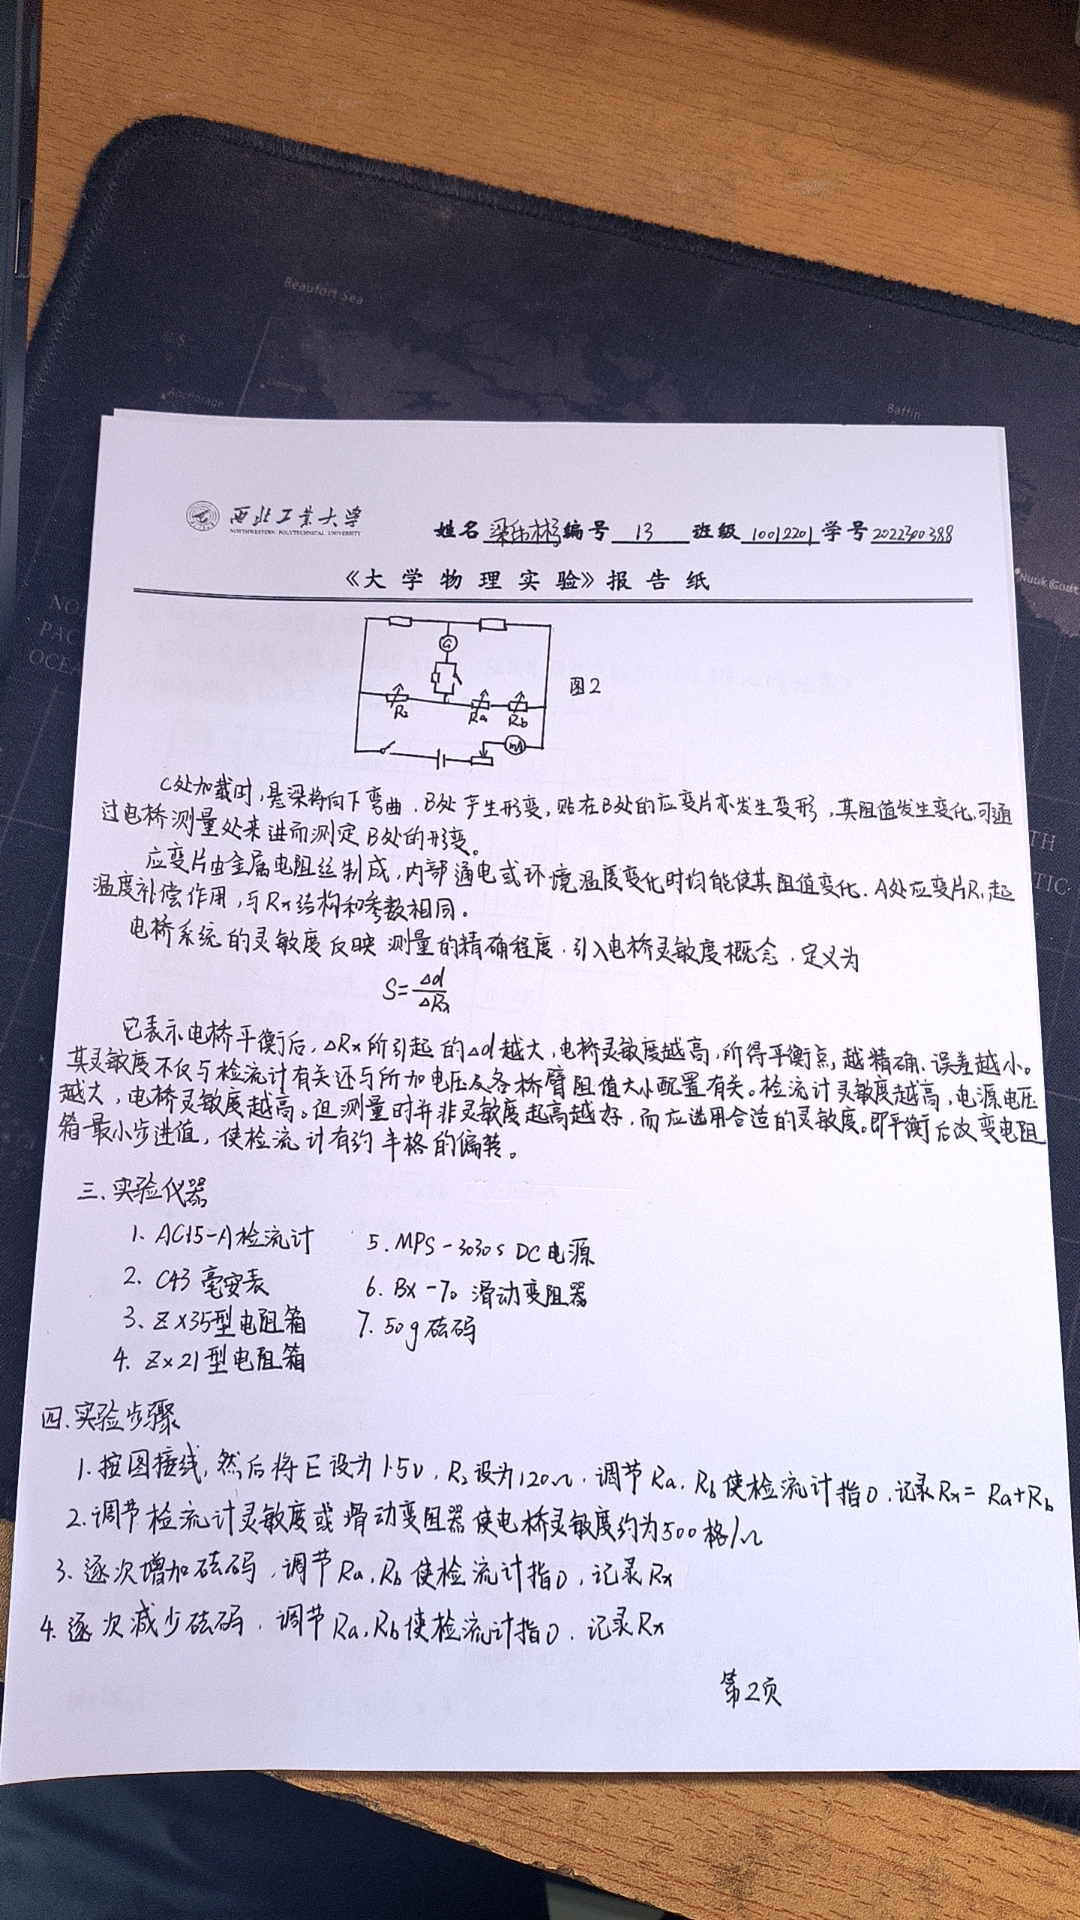 Beaufort Sea
Anchorage
Baffin
Nuuk (Godt
NO
PAC
OCEA
TH
TIC
西北工业大学
NORTHWESTERN POLYTECHNICAL UNIVERSITY
姓名 梁 彬 编号 13 班级 10012201 学号 2022300388
《大学物理实验》报告纸
G
图2
R₂ Ra Rb
mA
C处加载时,悬梁将向下弯曲,B处产生形变,贴在B处的应变片亦发生变形,其阻值发生变化,可通
过电桥测量处来进而测定B处的形变。
应变片由金属电阻丝制成,内部通电或环境温度变化时均能使其阻值变化.A处应变片R₁起
温度补偿作用,与Rx结构和参数相同。
电桥系统的灵敏度反映测量的精确程度.引入电桥灵敏度概念.定义为
S=Δd/ΔRx
它表示电桥平衡后,ΔRx所引起的Δd越大,电桥灵敏度越高,所得平衡点越精确.误差越小。
其灵敏度不仅与检流计有关还与所加电压及各桥臂阻值大小配置有关。检流计灵敏度越高,电源电压
越大,电桥灵敏度越高。但测量时并非灵敏度起高越好,而应选用合适的灵敏度。即平衡后改变电阻
箱最小步进值,使检流计有约半格的偏转。
三.实验仪器
1. AC15-A检流计 5. MPS-3030s DC电源
2. C43 毫安表 6. Bx-70 滑动变阻器
3. Zx35型电阻箱 7. 50g砝码
4. Zx21型电阻箱
四.实验步骤
1.按图接线,然后将E设为1.5V,R₂设为120Ω.调节Ra.Rb使检流计指0.记录Rx=Ra+Rb
2.调节检流计灵敏度或滑动变阻器使电桥灵敏度约为500格/Ω
3.逐次增加砝码,调节Ra.Rb使检流计指0,记录Rx
4.逐次减少砝码.调节Ra.Rb使检流计指0.记录Rx
第2页